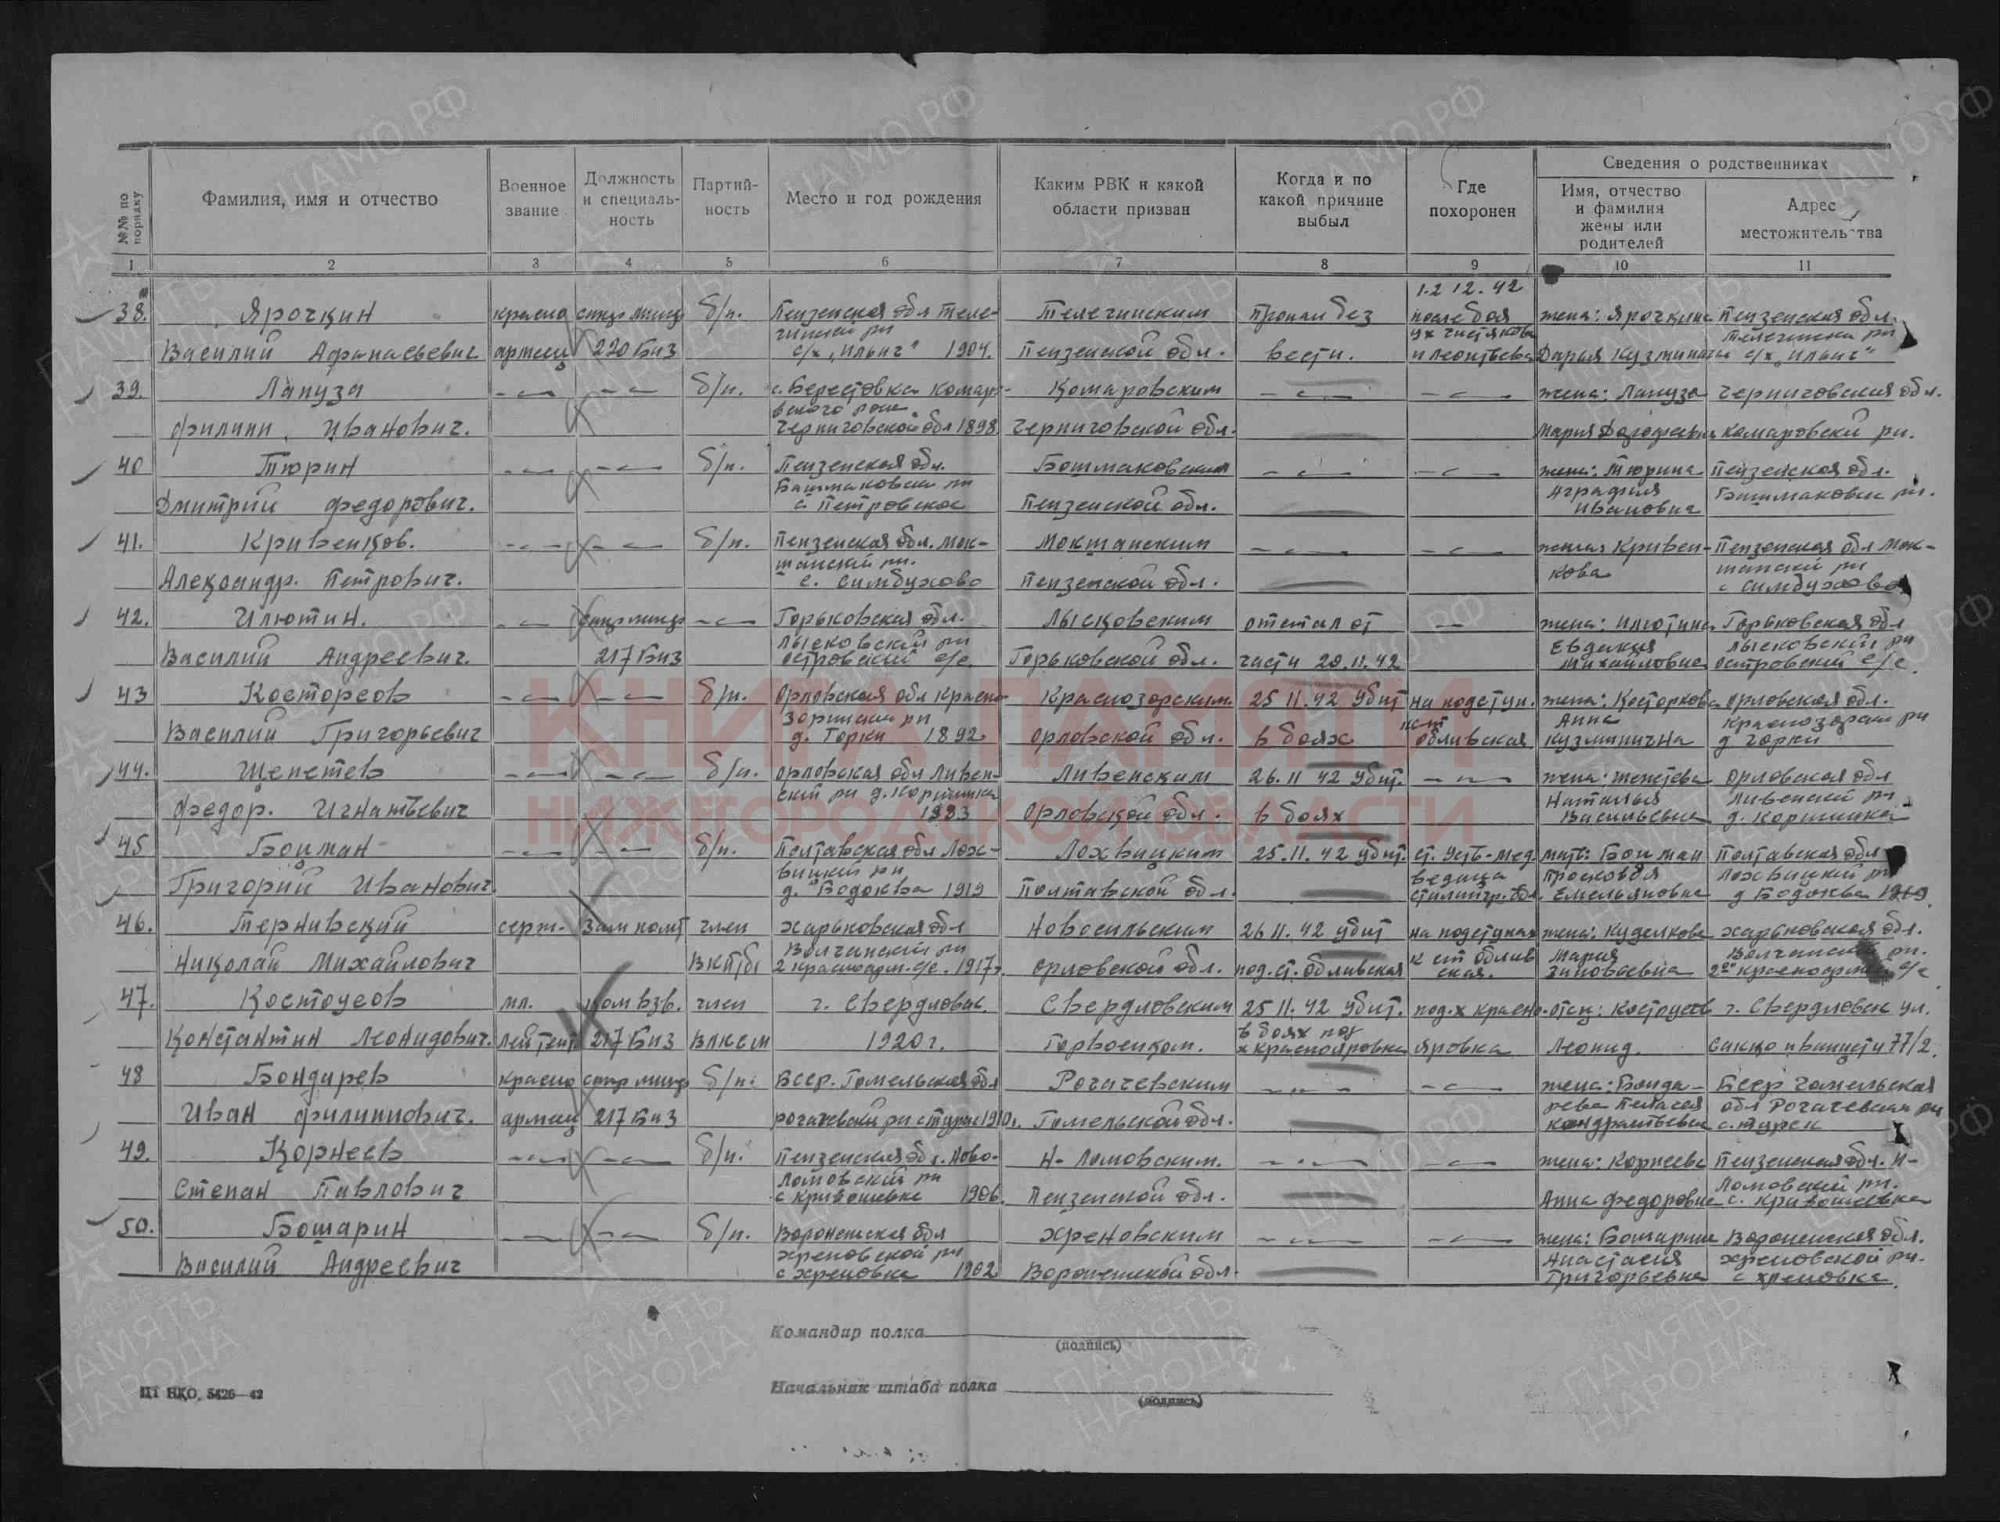 №№ по порядку
Фамилия, имя и отчество
Военное звание
Должность и специальность
Партий-ность
Место и год рождения
Каким РВК и какой области призван
Когда и по какой причине выбыл
Где похоронен
Сведения о родственниках
Имя, отчество и фамилия жены или родителей
Адрес местожительства
1 2 3 4 5 6 7 8 9 10 11
12.12.42
38. Ярочкин красно б/п. Пензенская обл Теле- Телегинским пропал без после боя жена: Ярочкина Пензенская обл.
Василий Афанасьевич армеец 220 Биз с/х „Ильич" 1904. Пензенской обл. вести. и Леонтьева Дарья Кузминична с/х „Ильич"
39. Лапуза б/п. с. Берестовка Комаро- Комаровским жена: Лапуза Черниговская обл.
вского
Филипп Иванович. Черниговской обл 1898. Черниговской обл. Мария Комаровски рн.
40 Тюрин б/п. Пензенская обл. Башмаковским жена: Тюрина Пензенская обл.
Башмаковски рн Башмаковски рн.
Дмитрий Федорович. с Петровское Пензенской обл. Ивановна
41. Кривенков. б/п. Пензенская обл. Мок- Мокшанским жена: Кривен- Пензенская обл Мок-
шанский рн. шански рн
Александр. Петрович. с. Симбухово Пензенской обл. кова с Симбухово
42. Илютин. Горьковская обл. Лысковским отстал от жена: Илютина Горьковская обл
Лысковский рн Евдокия Лысковский рн
Василий Андреевич. 217 Биз островский с/с. Горьковской обл. части 20.11.42 Михайловна островский с/с.
43 Костореов б/п. Орловская обл Красно- Краснозорским 25 11.42 убит на подступ. жена: Орловская обл.
Зоринский рн Анна Краснозорски рн
Василий Григорьевич д. Горки 1892. Орловской обл. в боях Обливская Кузминична д Горки
44. Щепетев б/п. Орловская обл Ливен- Ливенским 26.11 42 убит. жена: Щепетева Орловская обл
Наталья Ливенски рн
Федор. Игнатьевич Орловской обл. в боях Васильевна
45 Боцман б/п. Полтавская обл Лох- Лохвицким 25.11.42 убит. ст. Усть-Мед. мать: Боцман Полтавская обл
вицкий рн ведица Просковья Лохвицкий рн
Григорий Иванович. д. Бодаква 1919 Полтавской обл. Сталингр. обл. Емельяновна д Бодаква 1919
46. Тернивский серж. Зам комт член Харьковская обл Новосильским 26 11. 42 убит на подступах жена: Харьковская обл.
Волчанский рн к ст Облив Мария Волчанский рн.
Николай Михайлович ВКП(б) 2 Красноарм. с/с. 1917г Орловской обл. под. ст. Обливская ская. Зиновьевна с/с
47. Костоусов мл. ком взв. член г. Свердловск. Свердловским 25 11. 42 убит. под. х Красно- отец: Костоусов г. Свердловск ул.
в боях под
Константин Леонидович. лейтент 217 Биз ВЛКСМ 1920 г. Горвоенком. х Краснояровка яровка Леонид. Сакко и Ванцети 77/2.
48 Бондарев красно б/п. Бсср. Гомельская обл Рогачевским жена: Бонда- Бсср Гомельская
рева Пелагея обл Рогачевски рн
Иван Филиппович. армеец 217 Биз рогачевский рн с Турск 1910г. Гомельской обл. Кондратьевна с. Турск
49. Корнеев б/п. Пензенская обл. Ново- Н-Ломовским. жена: Корнеева Пензенская обл. Н-
Ломовский рн Ломовский рн.
Степан Павлович с Кривошеевка 1906. Пензенской обл. Анна Федоровна с. Кривошеевка
50. Бошарин б/п. Воронежская обл Хреновским жена: Бошарина Воронежская обл.
Хреновской рн Анастасия Хреновской рн.
Василий Андреевич с Хреновка 1902 Воронежской обл. Григорьевна с Хреновка.
Командир полка
(подпись)
Начальник штаба полка
(подпись)
ЦТ НКО. 5426—42
КНИГА ПАМЯТИ
НИЖЕГОРОДСКОЙ ОБЛАСТИ
ПАМЯТЬ НАРОДА
ЦАМО.РФ